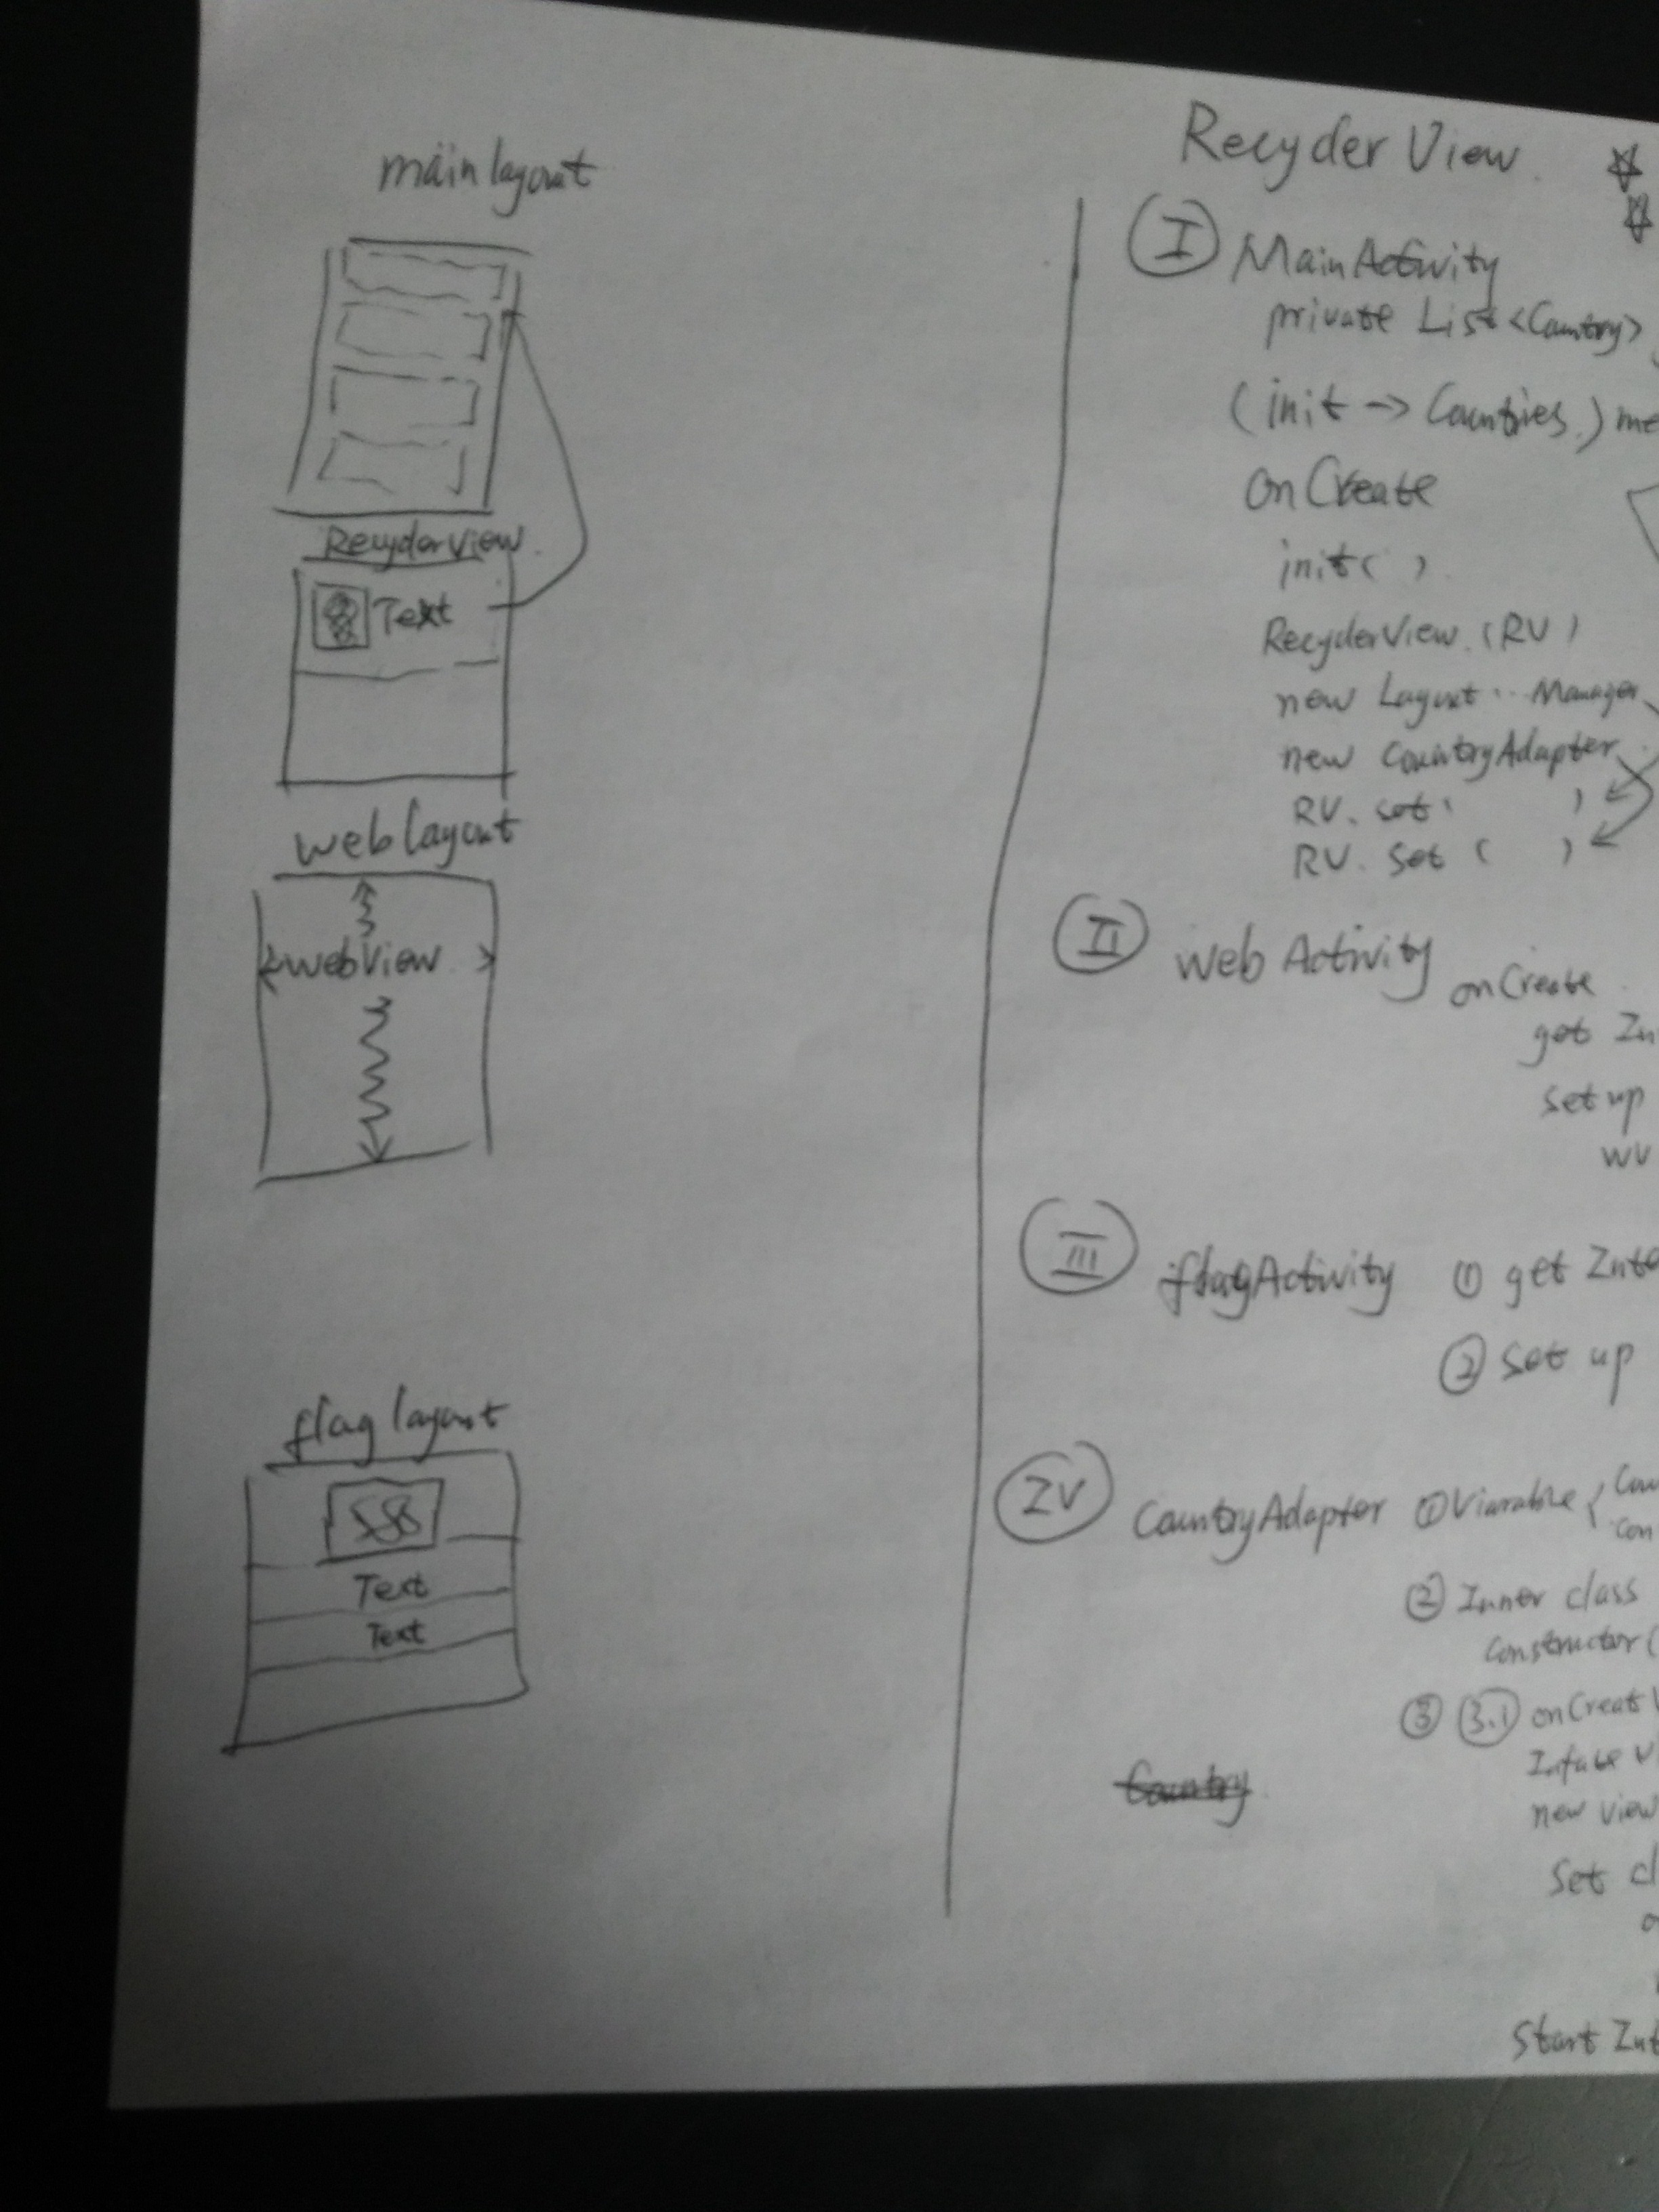 main layout
RecyderView
Text
web layout
webView
flag layout
Text
Text
Recyder View
I MainActivity
private List <Country>
(init -> Countries.) me
onCreate
init( )
RecyderView (RV)
new Layout ... Manager
new CountryAdapter
RV. set( )
RV. set ( )
II web Activity
onCreate
get In
set up
wv
III flagActivity ① get Inte
② set up
IV CountryAdapter ① Viarable { Cou
Con
② Inner class
Constructor (
③ 3.1 onCreat V
new view
Country
Set cl
Start Int